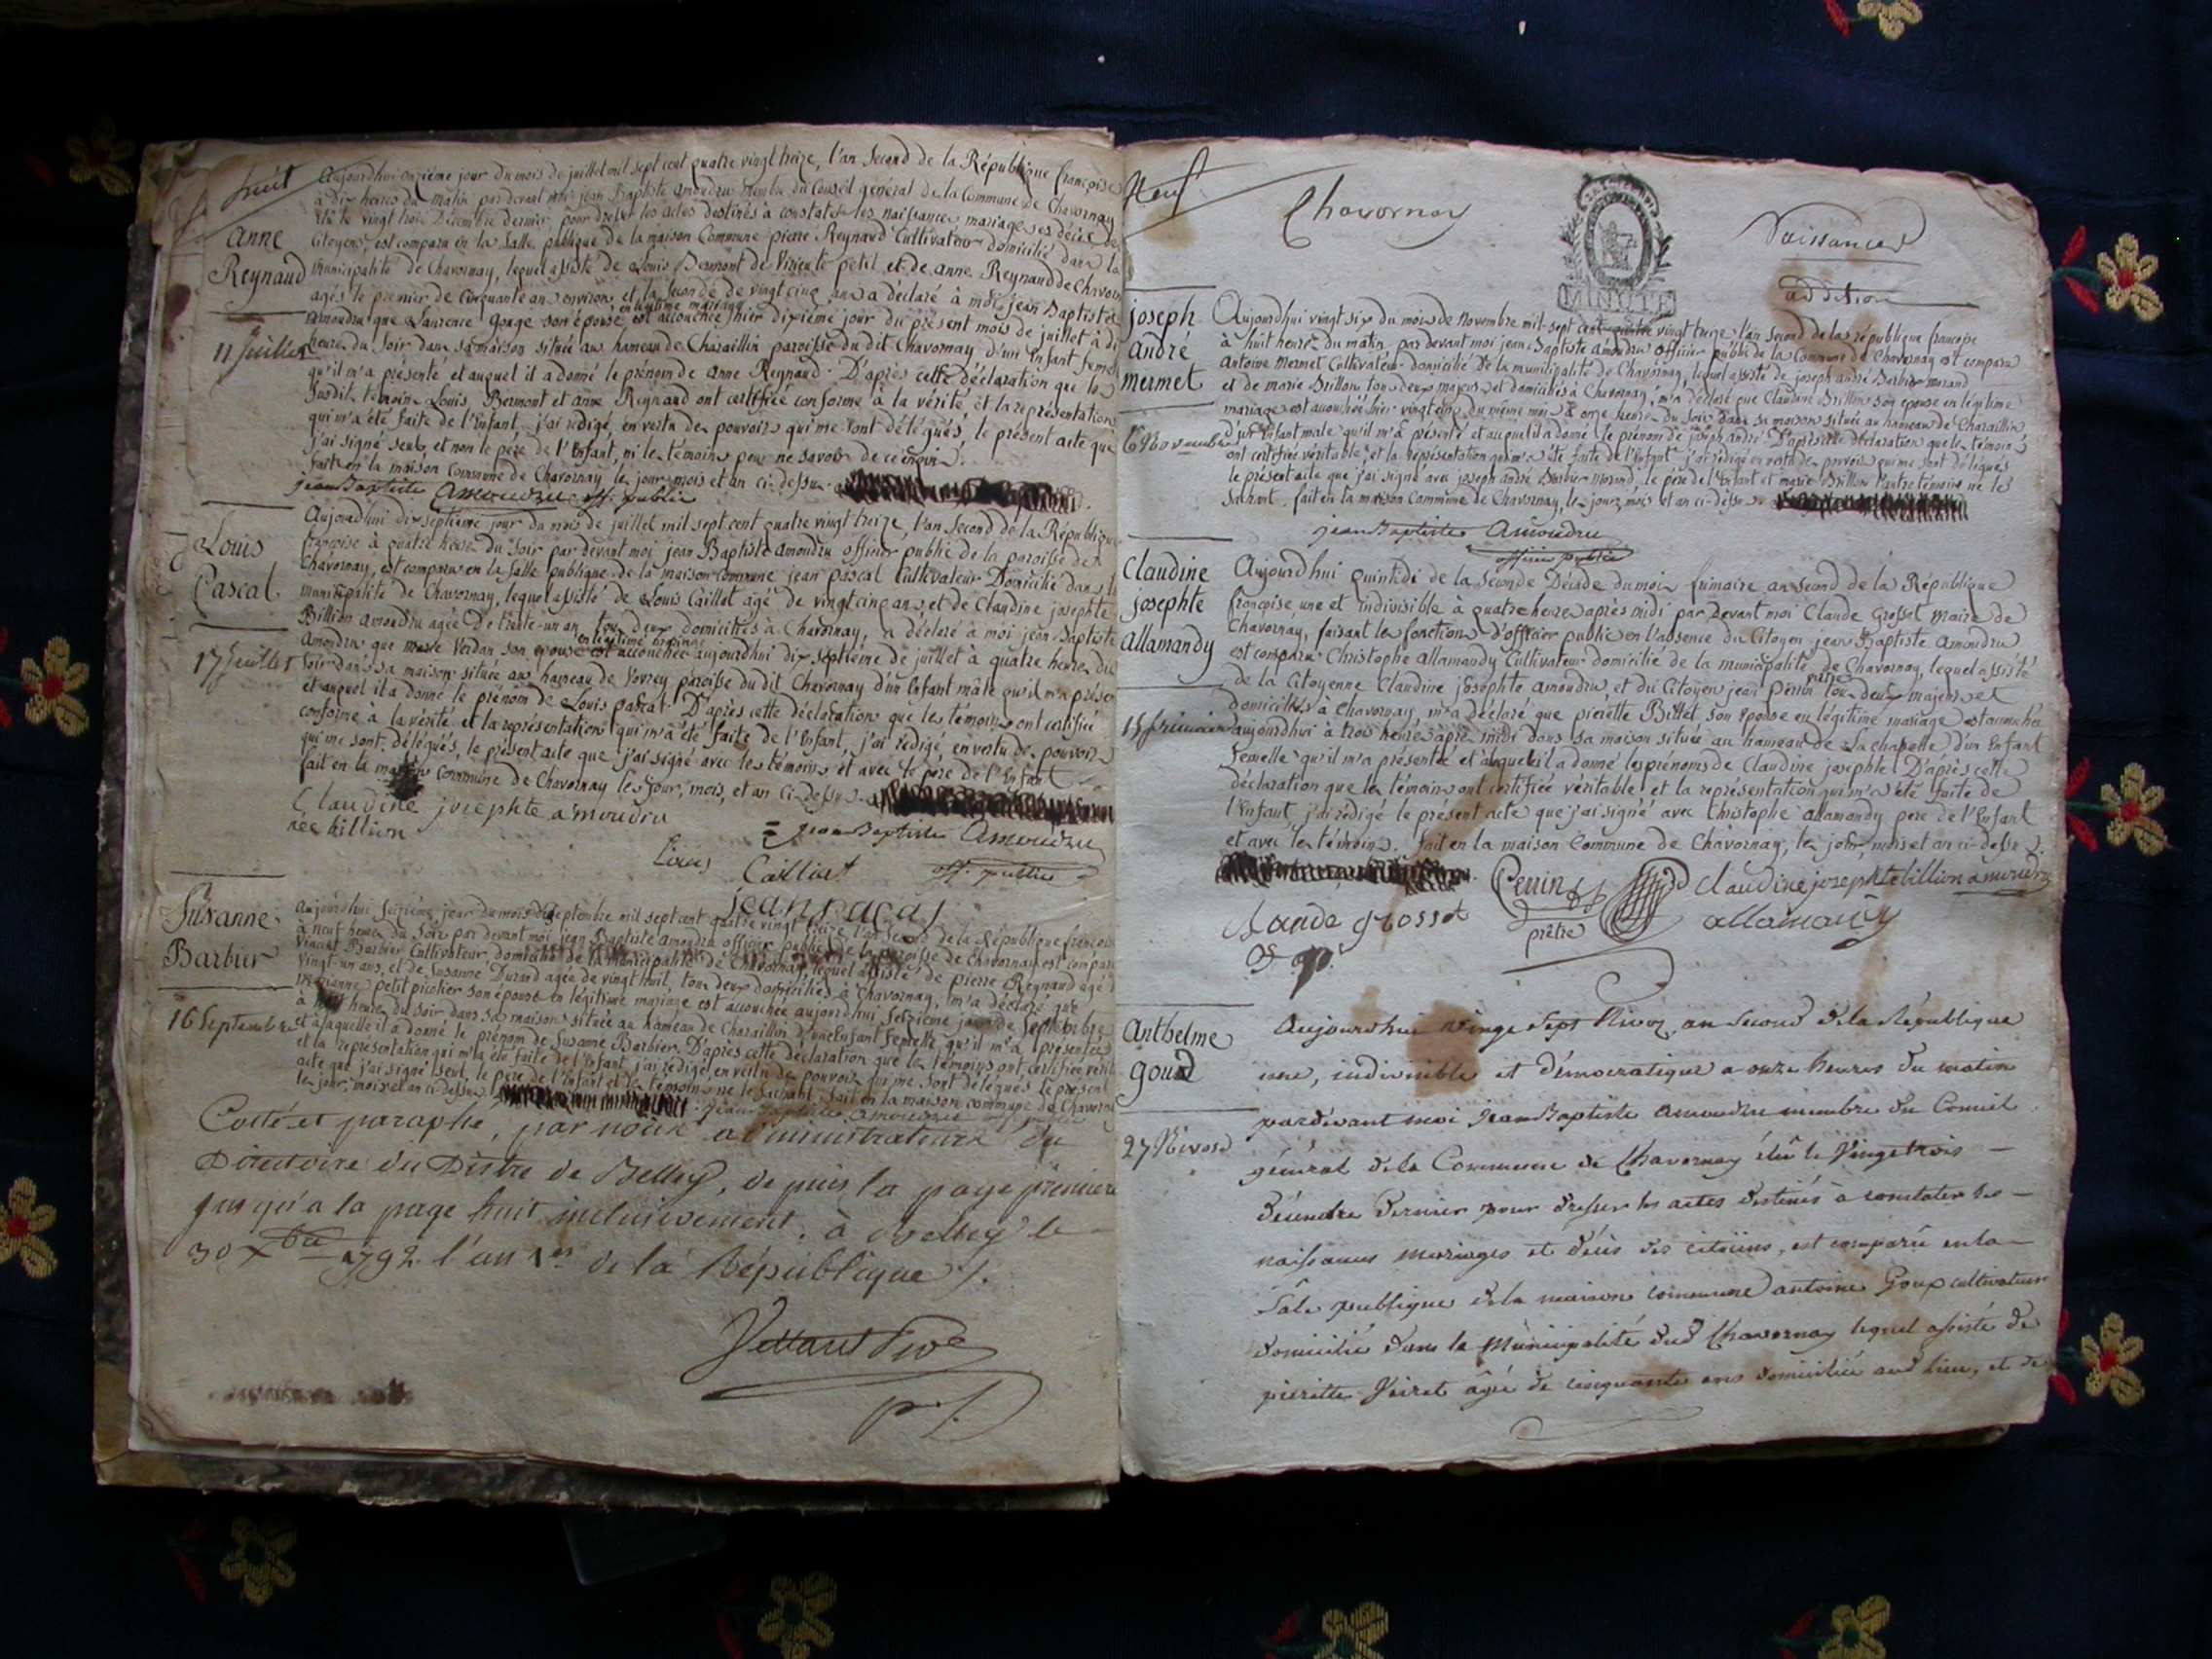 huit
Aujourdhui onzième jour du mois de juillet mil sept cent quatre vingt treize, l'an second de la République françoise
à dix heures du matin par devant moi jean Baptiste amoudru membre du Conseil général de la Commune de Chavornay
élu le vingt trois Décembre dernier pour dresser les actes destinés à constater les naissances mariages et décès des
Citoyens, est comparu en la Salle publique de la maison Commune pierre Reynaud Cultivateur domicilié dans la
anne
Reynaud
municipalité de Chavornay, lequel assisté de Louis Bermont de Virieu le petit et de anne Reynaud de Chavornay
agés le premier de Cinquante ans environ et la seconde de vingt cinq ans a déclaré à moi jean Baptiste
en légitime mariage
amoudru que Laurence goage son épouse est accouchée hier dixième jour du présent mois de juillet à
11 juillet
heures du Soir dans sa maison située au hameau de Charaillin paroisse du dit Chavornay d'un Enfant femelle
qu'il m'a présenté et auquel il a donné le prénom de anne Reynaud. D'après cette déclaration que les
susdits témoins Louis Bermont et anne Reynaud ont certifiée conforme à la vérité et la représentation
qui m'a été faite de l'Enfant j'ai rédigé, en vertu des pouvoirs qui me sont délégués, le présent acte que
j'ai signé seul, et non le père de l'Enfant, ni les témoins pour ne savoir de ce enquis.
fait en la maison Commune de Chavornay les jour mois et an ci-dessus.
jean Baptiste amoudru off. public
Louis
Pascal
17 juillet
Aujourdhui dix septième jour du mois de juillet mil sept cent quatre vingt treize, l'an second de la République
françoise à quatre heures du Soir par devant moi jean Baptiste amoudru officier public de la paroisse de
Chavornay, est comparu en la salle publique de la maison commune jean pascal Cultivateur Domicilié dans la
municipalité de Chavornay, lequel assisté de Louis Caillot agé de vingt cinq ans, et de Claudine josephte
Billion amoudru agée de trente-un an tous deux domiciliés à Chavornay, a déclaré à moi jean Baptiste
en légitime mariage
amoudru que marie Verdan son épouse est accouchée aujourdhui dix septième de juillet à quatre heures du
Soir dans sa maison située au hameau de Vovrey paroisse du dit Chavornay d'un Enfant mâle qu'il m'a présenté
et auquel il a donné le prénom de Louis pascal. D'après cette déclaration que les témoins ont certifiée
conforme à la vérité et la représentation qui m'a été faite de l'Enfant, j'ai rédigé, en vertu des pouvoirs
qui me sont délégués, le présent acte que j'ai signé avec les témoins et avec le père de l'Enfant
fait en la maison commune de Chavornay les jour, mois, et an Ci-dessus.
Claudine josephte amoudru
née billion
jean Baptiste Amoudru
off. public
Louis Calliot
jean pacal
Suzanne
Barbier
16 Septembre
aujourdhui Seizième jour du mois de septembre mil sept cent quatre vingt treize l'an second de la République françoise
à neuf heures du Soir par devant moi jean Baptiste amoudru officier public de la paroisse de Chavornay est comparu
Vincent Barbier Cultivateur, domicilié de la municipalité de Chavornay lequel assisté de pierre Reynaud agé de
vingt un ans, et de Suzanne Durand agée de vingt huit, tous deux domiciliés à Chavornay, m'a déclaré que
marianne petit picotier son épouse en légitime mariage est accouchée aujourdhui Seizième jour de Septembre
à huit heures du Soir dans sa maison située au hameau de Charaillin d'un Enfant femelle qu'il m'a présentée
et à laquelle il a donné le prénom de Suzanne Barbier. D'après cette déclaration que les témoins ont certifiée
et la représentation qui m'a été faite de l'Enfant j'ai rédigé en vertu des pouvoirs qui me sont délégués le présent
acte que j'ai signé seul, le père de l'Enfant et les témoins ne le sachant. fait en la maison commune de Chavornay
les jour, mois et an ci-dessus. jean Baptiste amoudru
Cotté et paraphé, par nous administrateurs du
Directoire du Distre de Belley, depuis la page première
jusqu'a la page huit inclusivement. à Belley le
30 xbre 1792. l'an 1er de la République
neuf
Chavornay
Naissances
addition
MINUTE
joseph
andré
mermet
Aujourdhui vingt six du mois de Novembre mil sept cent quatre vingt treize l'an second de la république françoise
à huit heures du matin par devant moi jean Baptiste amoudru officier public de la Commune de Chavornay est comparu
antoine mermet Cultivateur domicilié de la municipalité de Chavornay, lequel assisté de joseph andré Barbier morand
et de marie Brillon tous deux majeurs et domiciliés à Chavornay, m'a déclaré que Claudine Brillon son épouse en légitime
mariage est accouchée hier vingt cinq du même mois à onze heures du Soir dans sa maison située au hameau de Charaillin
26 Novembre
d'un Enfant male qu'il m'a présenté et auquel il a donné le prénom de joseph andré. D'après cette déclaration que les témoins
ont certifiée véritable et la représentation qui m'a été faite de l'Enfant j'ai rédigé en vertu des pouvoirs qui me sont délégués
le présent acte que j'ai signé avec joseph andré Barbier morand, le père de l'Enfant et marie Brillon l'autre témoin ne le
sachant. fait en la maison Commune de Chavornay, les jour, mois et an ci-dessus
jean Baptiste Amoudru
officier public
Claudine
josephte
Allamandy
15 frimaire
Aujourdhui quintidi de la seconde Décade du mois frimaire an second de la République
françoise une et indivisible à quatre heures après midi par devant moi Claude Grosset maire de
Chavornay, faisant les fonctions d'officier public en l'absence du Citoyen jean Baptiste amoudru
est comparu Christophe allamandy Cultivateur domicilié de la municipalité de Chavornay, lequel assisté
prêtre
de la Citoyenne Claudine josephte amoudru, et du Citoyen jean Perrin tous deux majeurs et
domiciliés à Chavornay, m'a déclaré que pierette Billet, son épouse en légitime mariage est accouchée
aujourdhui à trois heures après midi dans sa maison située au hameau de La chapelle d'un Enfant
femelle qu'il m'a présentée et à laquelle il a donné les prénoms de Claudine josephte. D'après cette
déclaration que les témoins ont certifiée véritable et la représentation qui m'a été faite de
l'Enfant j'ai rédigé le présent acte que j'ai signé avec Christophe allamandy pere de l'Enfant
et avec les témoins. fait en la maison Commune de Chavornay, les jour, mois et an ci-dessus.
Perrin
prêtre
claudine josephte billion amoudru
Claude grosset
allamandy
Anthelme
goux
27 Nivose
Aujourdhui vingt sept Nivoz, an second de la République
une, indivisible et démocratique a onze heures du matin
pardevant moi jean Baptiste amoudru membre du Conseil
général de la Commune de Chavornay élu le vingt trois
décembre dernier pour dresser les actes destinés à constater les
naissances mariages et décès des citoiens, est comparu en la
sale publique de la maison commune antoine Goux cultivateur
domicilié dans la Municipalité dud Chavornay lequel assisté de
pierrette Veiret agée de cinquante ans domiciliée aud lieu, et de